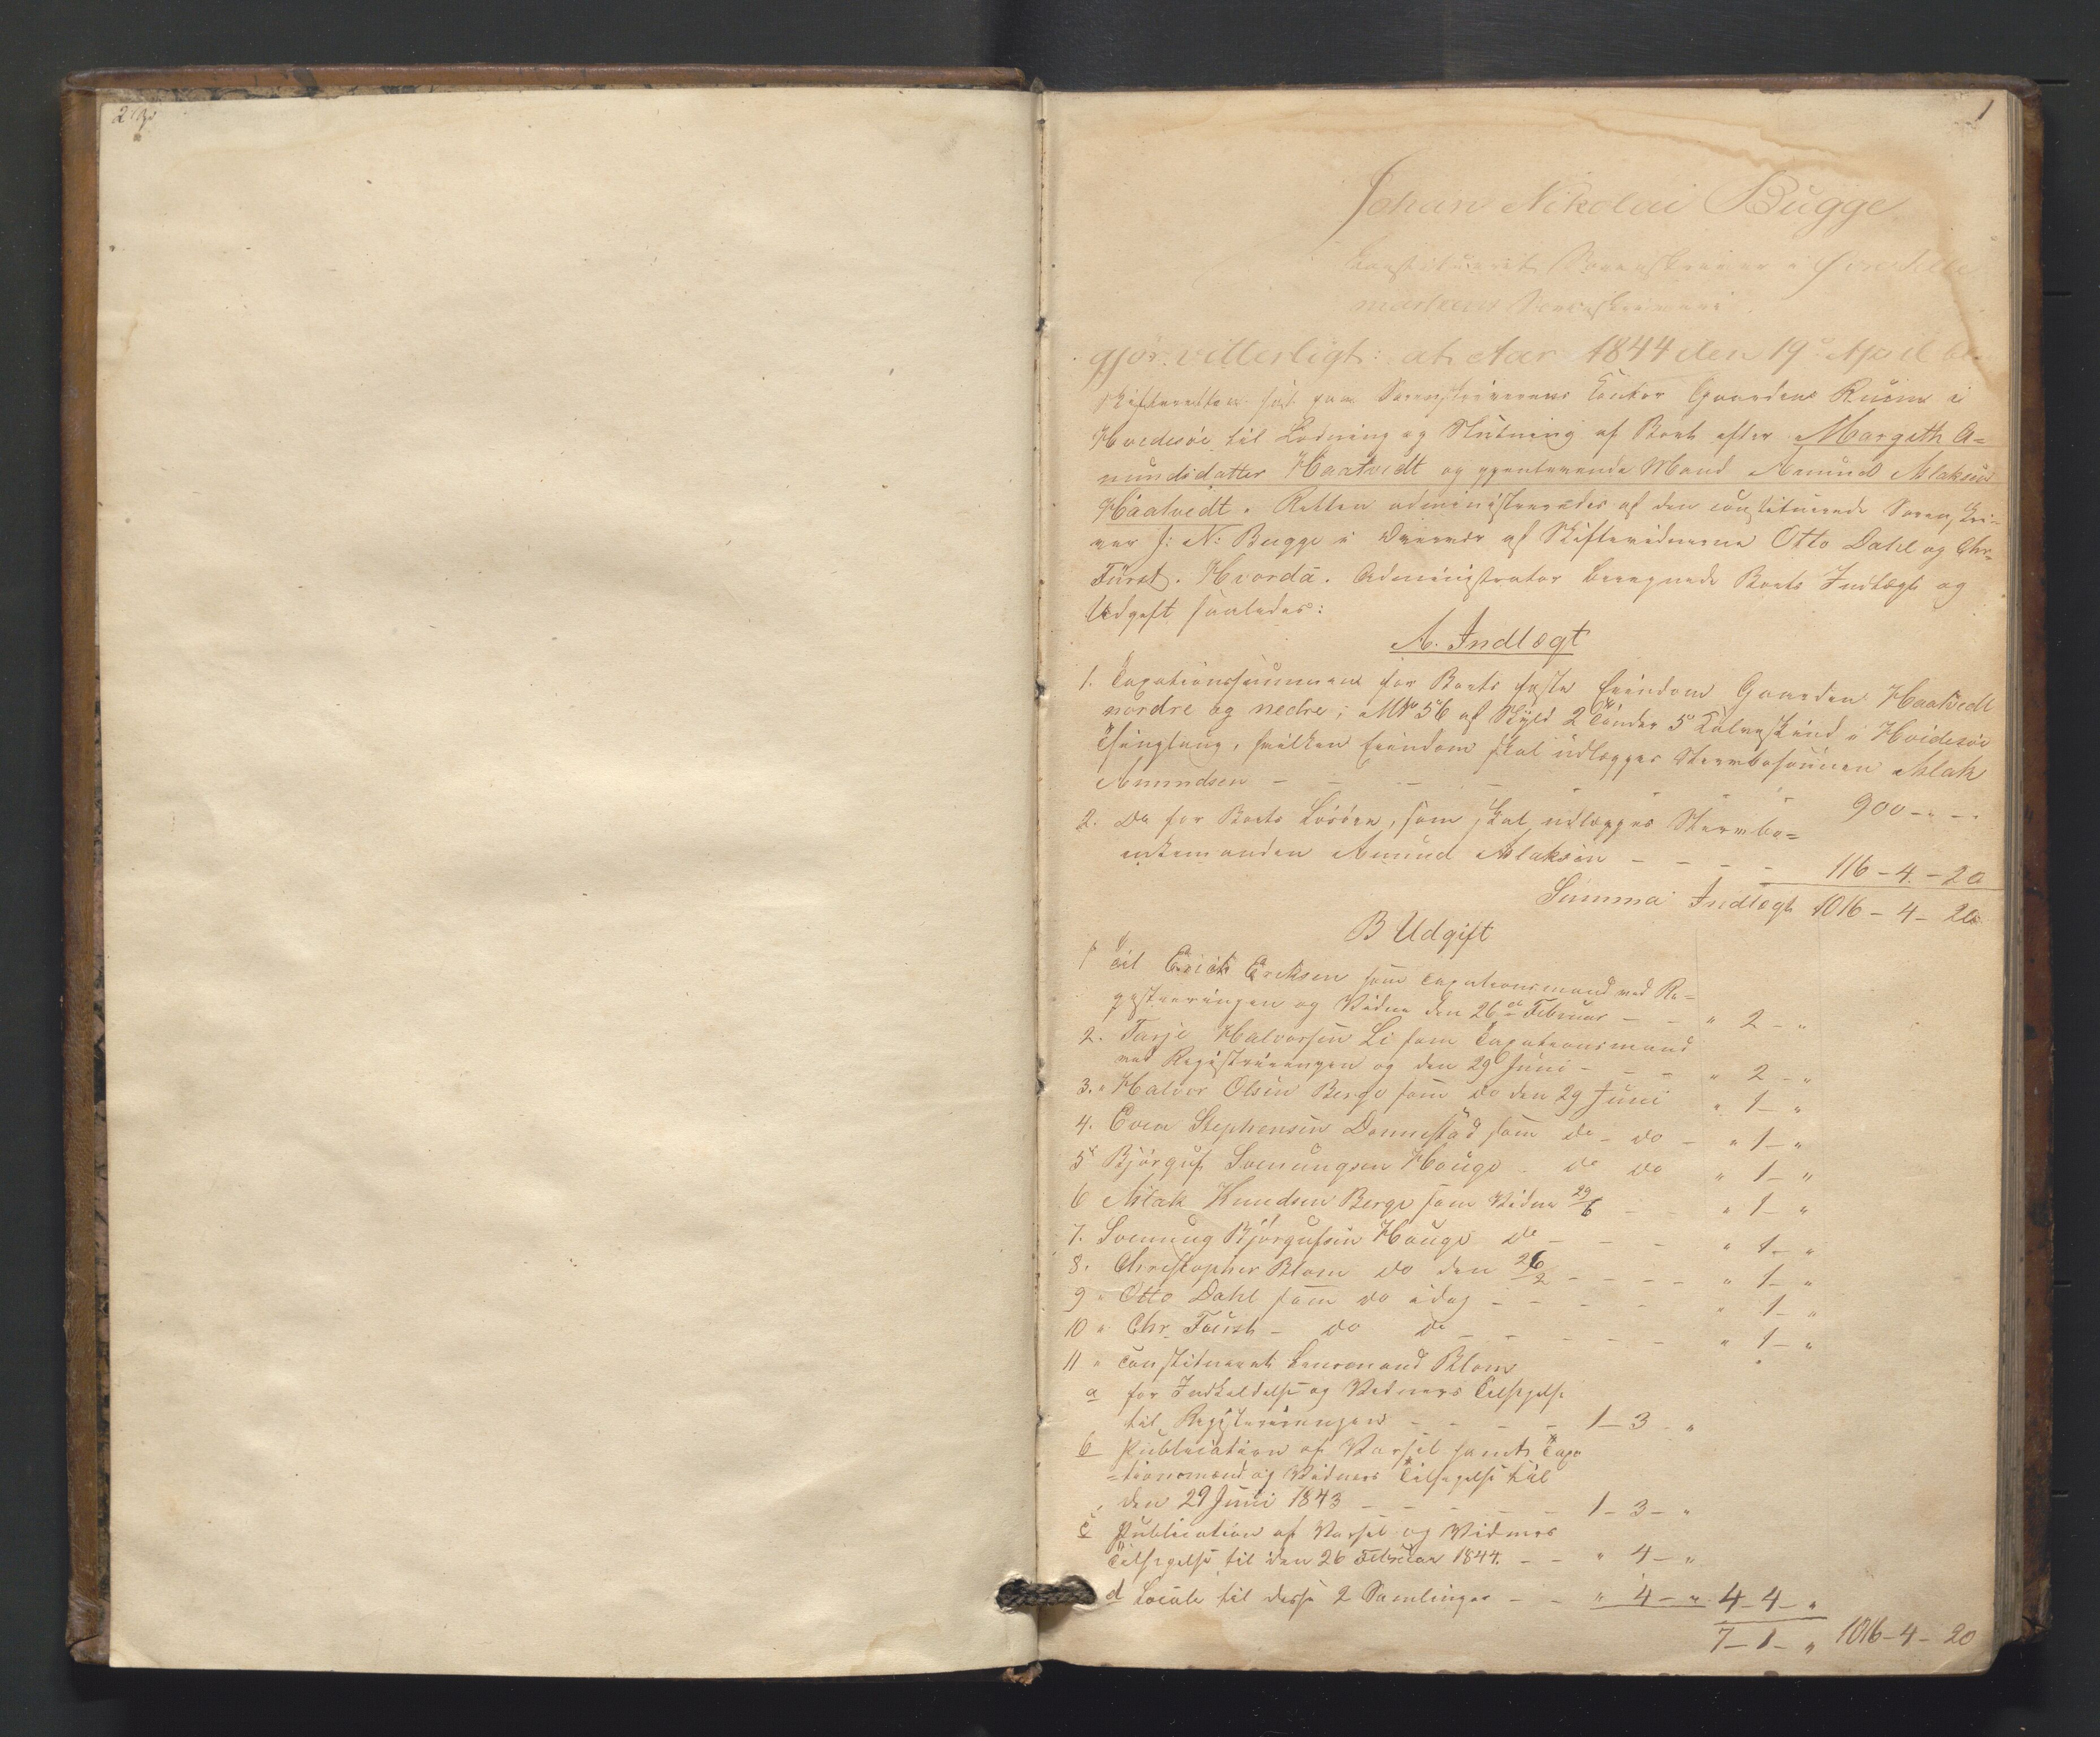 1
Johan Nikolai Bugge
Constitueret Sorenskriver i
markens Sorenskriveri
gjør vitterligt: at Aar 1844 den 19de April be-
Skifteretten sat paa Sorenskriverens Contor Gaarden Ruum i
Hvedesøe til Lodning og Slutning af Boet efter Margith A=
mundsdatter Haatvedt og gjenlevende Mand Amund Aslaksen
Haatvedt. Retten administreredes af den constituerede Sorenskri=
ver J: N: Bugge i Overvær af Skiftevidnerne Otto Dahl og Chr.
Fürst. Hvorda. Administrator beregnede Boets Indtægt og
Udgift saaledes:
A. Indtægt
1. Taxationssummen for Boets faste Eiendom Gaarden Haatvedt
nordre og nedre, MNo 56 af Skyld 2 Tønder 5 Kalveskind i Hvidesøe
Thinglaug, hvilken Eiendom skal udlægges Stervbosønnen Aslak
Amundsen - - - - - - - 900 - " - "
2. Do for Boets Løsøre, som skal udlægges Stervbo=
enkemanden Amund Aslaksen - - - - 116 - 4. - 20
Summa Indtægt 1016 - 4 - 20
B Udgift
1 til Erick Ericksen som Taxationsmand ved Re=
gistreringen og Vidne den 26de Februar - - " 2 - "
2. Tarje Halvorsen Li som Taxationsmand
ved Registreringen og den 29 Juni - - - " 2 - "
3. " Halvor Olsen Berge som do den 29 Juni " 1 - "
4. Even Stephensen Donnestad som do - do - " 1 - "
5 Bjørguf Svenungsen Houge - do do " 1 - "
6 Aslak Knudsen Berge som Vidne 29/6 - - " 1 - "
7. Svenung Bjørgufsen Houge do - - - " 1 - "
8. Christopher Blom do den 26/2 - - - - " 1 - "
9 " Otto Dahl som do idag - - - - " 1 - "
10 " Chr. Fürst - do do - - - - - " 1 - "
11 " constitueret Lensmand Blom
a for Indkaldelse og Vidners Tilsigelse
til Registreringen - - - - - 1 - 3 - "
b Publication af Varsel samt Taxa
=tionsmænd og Vidners Tilsigelse til
den 29 Juni 1843 - - - - - - 1 - 3 - "
c Publication af Varsel og Vidners
Tilsigelse til den 26 Februar 1844. - - " 4 - "
d Locale til disse 2 Samlinger - - " 4 - " 4 - 4 - "
7 - 1 - " 1016 - 4 - 20